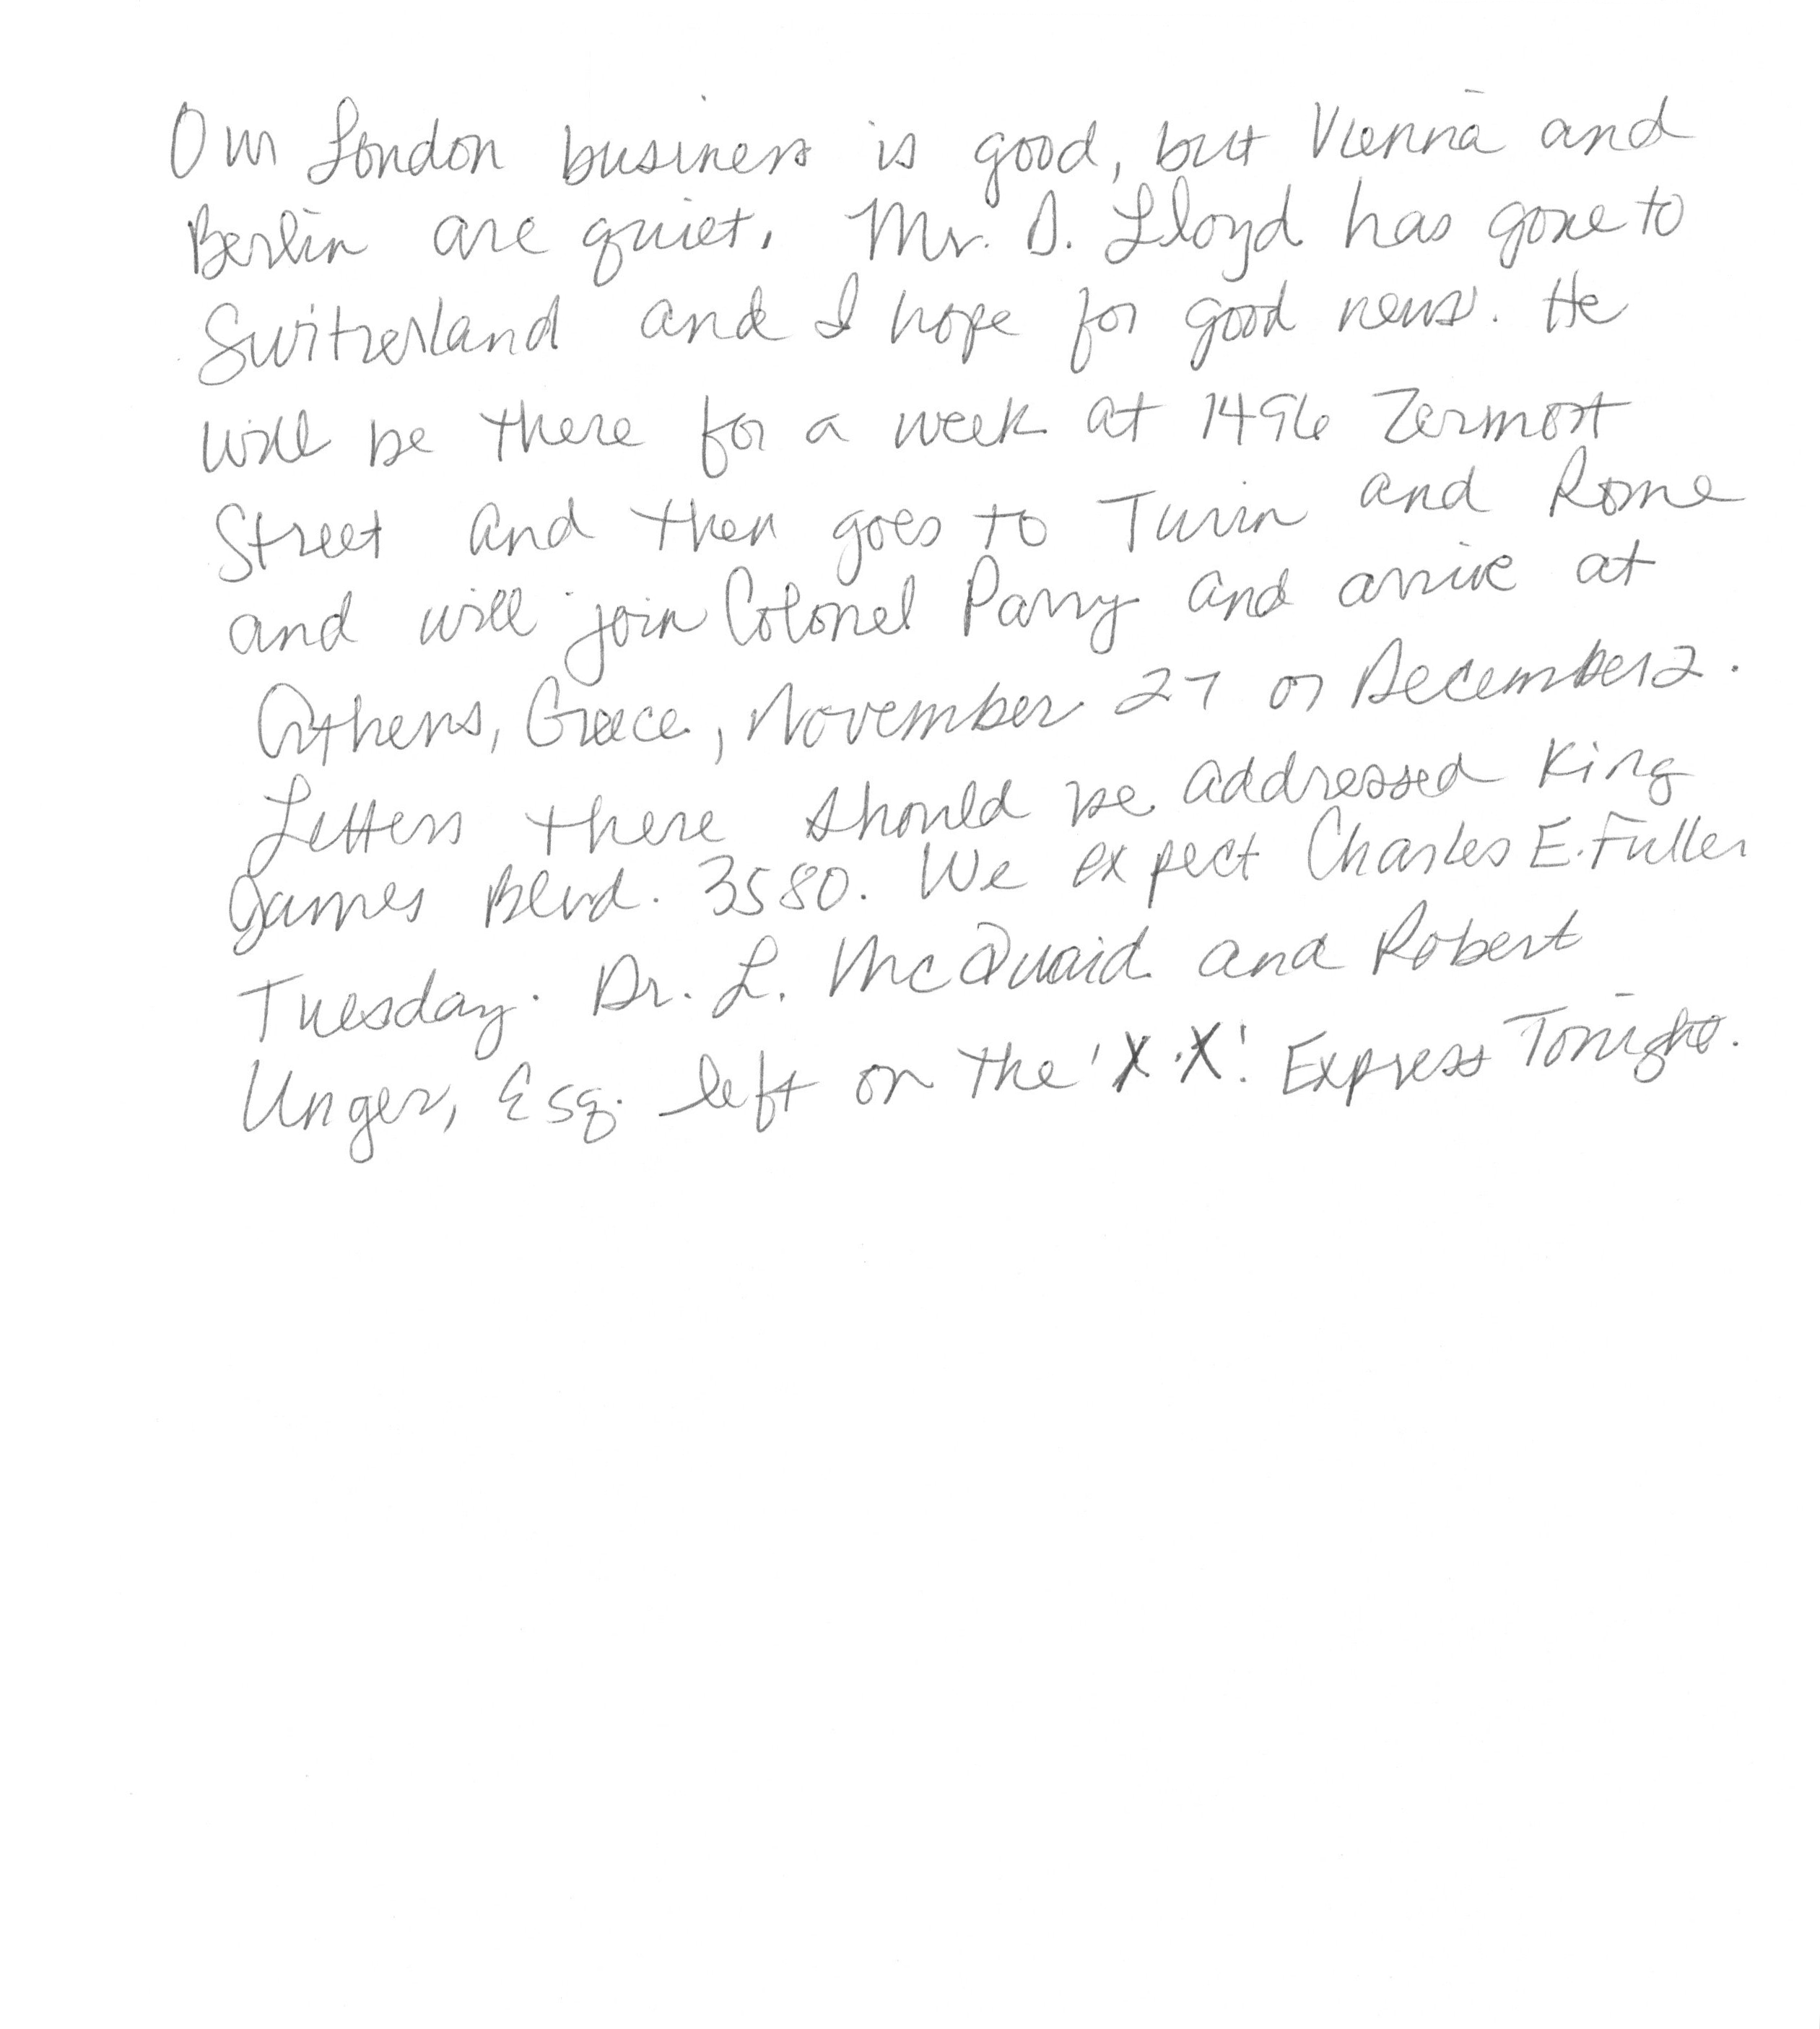 Our London business is good, but Vienna and
Berlin are quiet. Mr. D. Lloyd has gone to
Switzerland and I hope for good news. He
will be there for a week at 1496 Zermott
Street and then goes to Turin and Rome
and will join Colonel Parry and arrive at
Athens, Greece, November 27 or December 2.
Letters there should be addressed King
James Blvd. 3580. We expect Charles E. Fuller
Tuesday. Dr. L. McQuaid and Robert
Unger, Esq. left on the 'X.X'. Express Tonight.